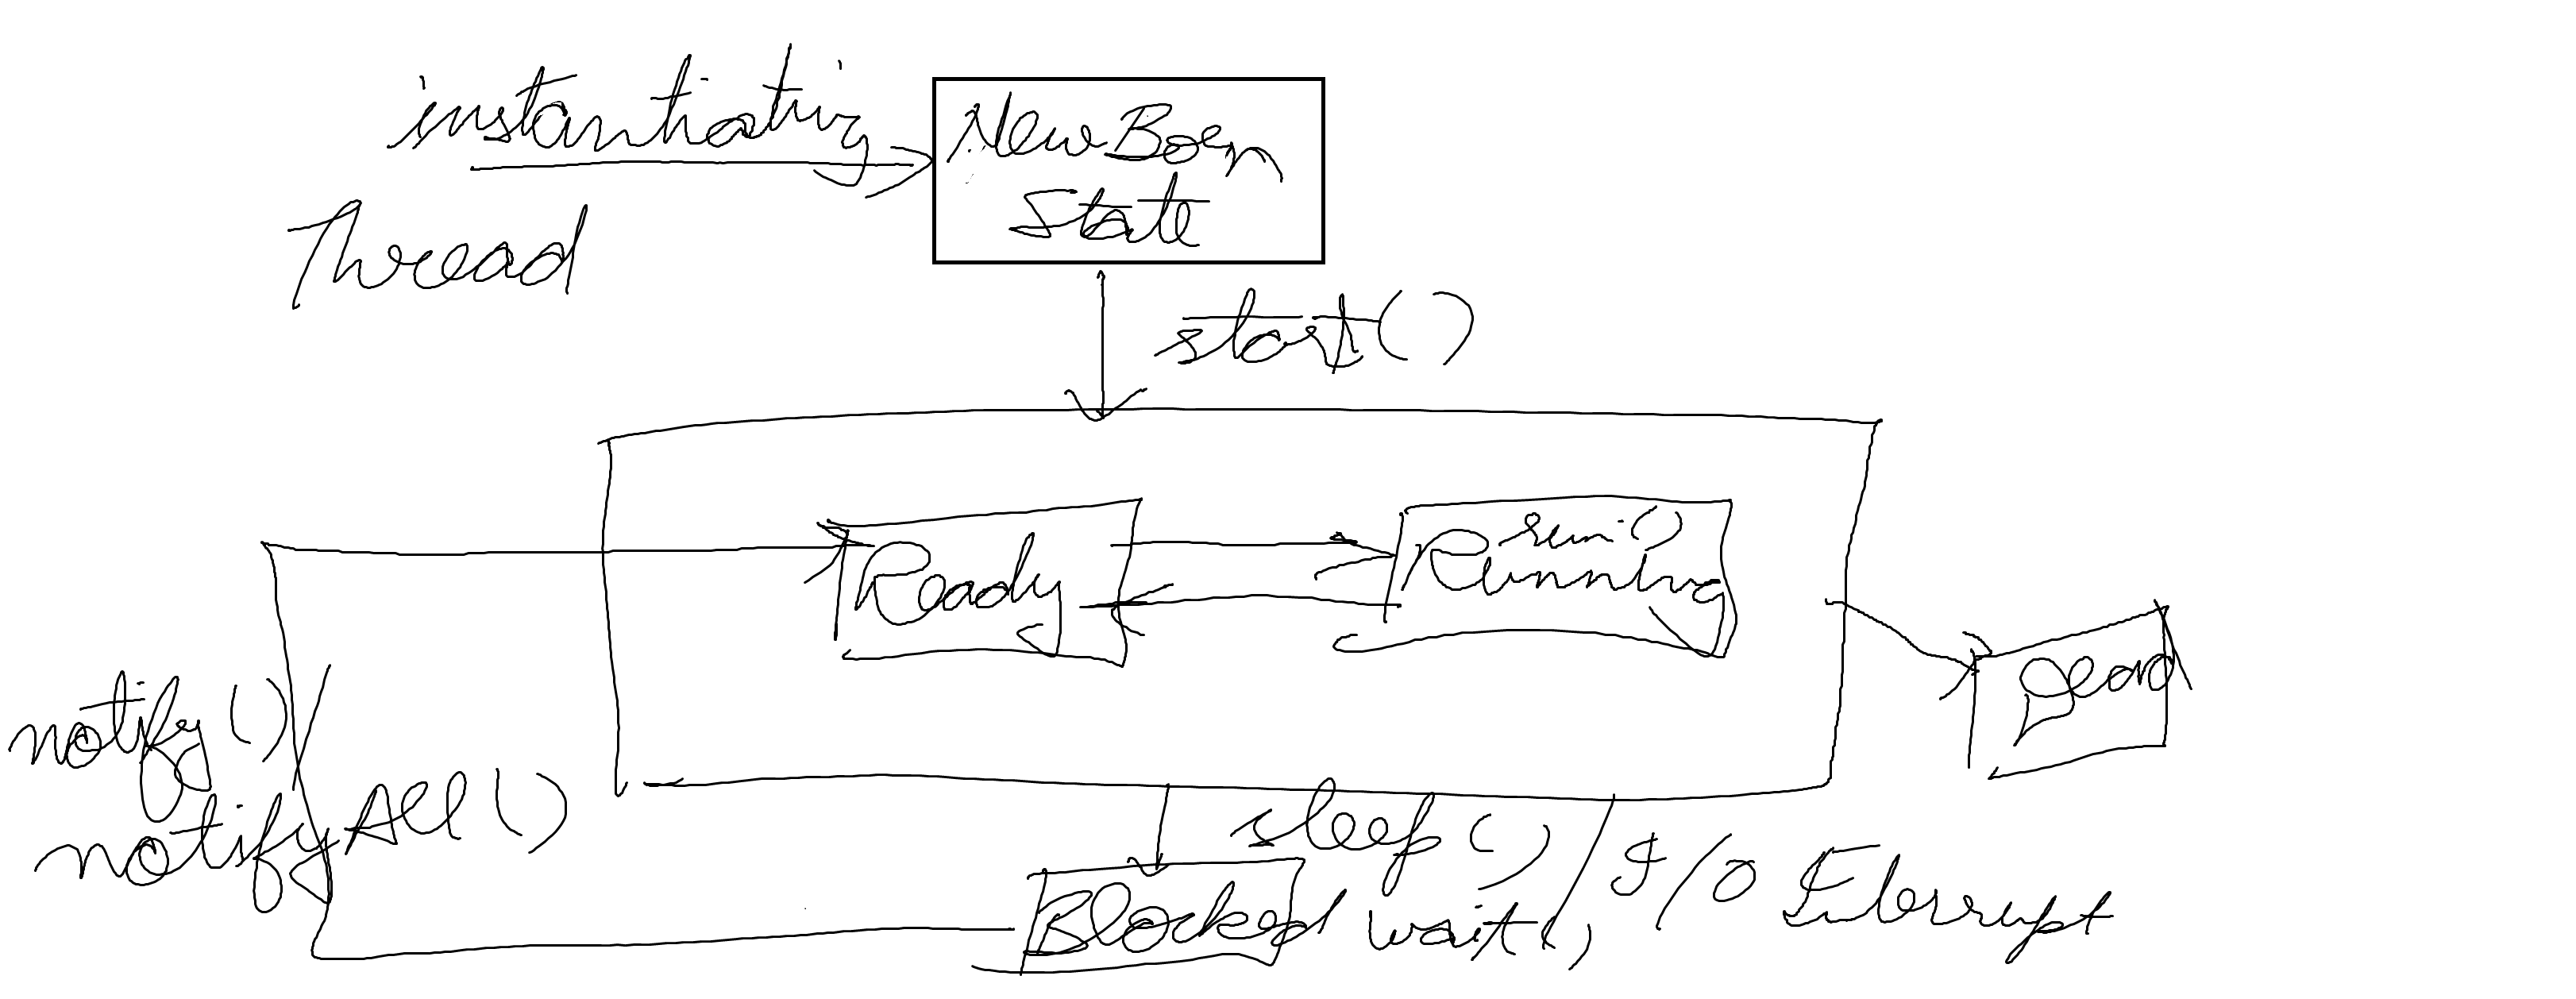 instantiating
Thread
New Born
State
start()
Ready
run()
Running
Dead
notify() /
notifyAll()
sleep() / I/O Interrupt
Blocked
wait()